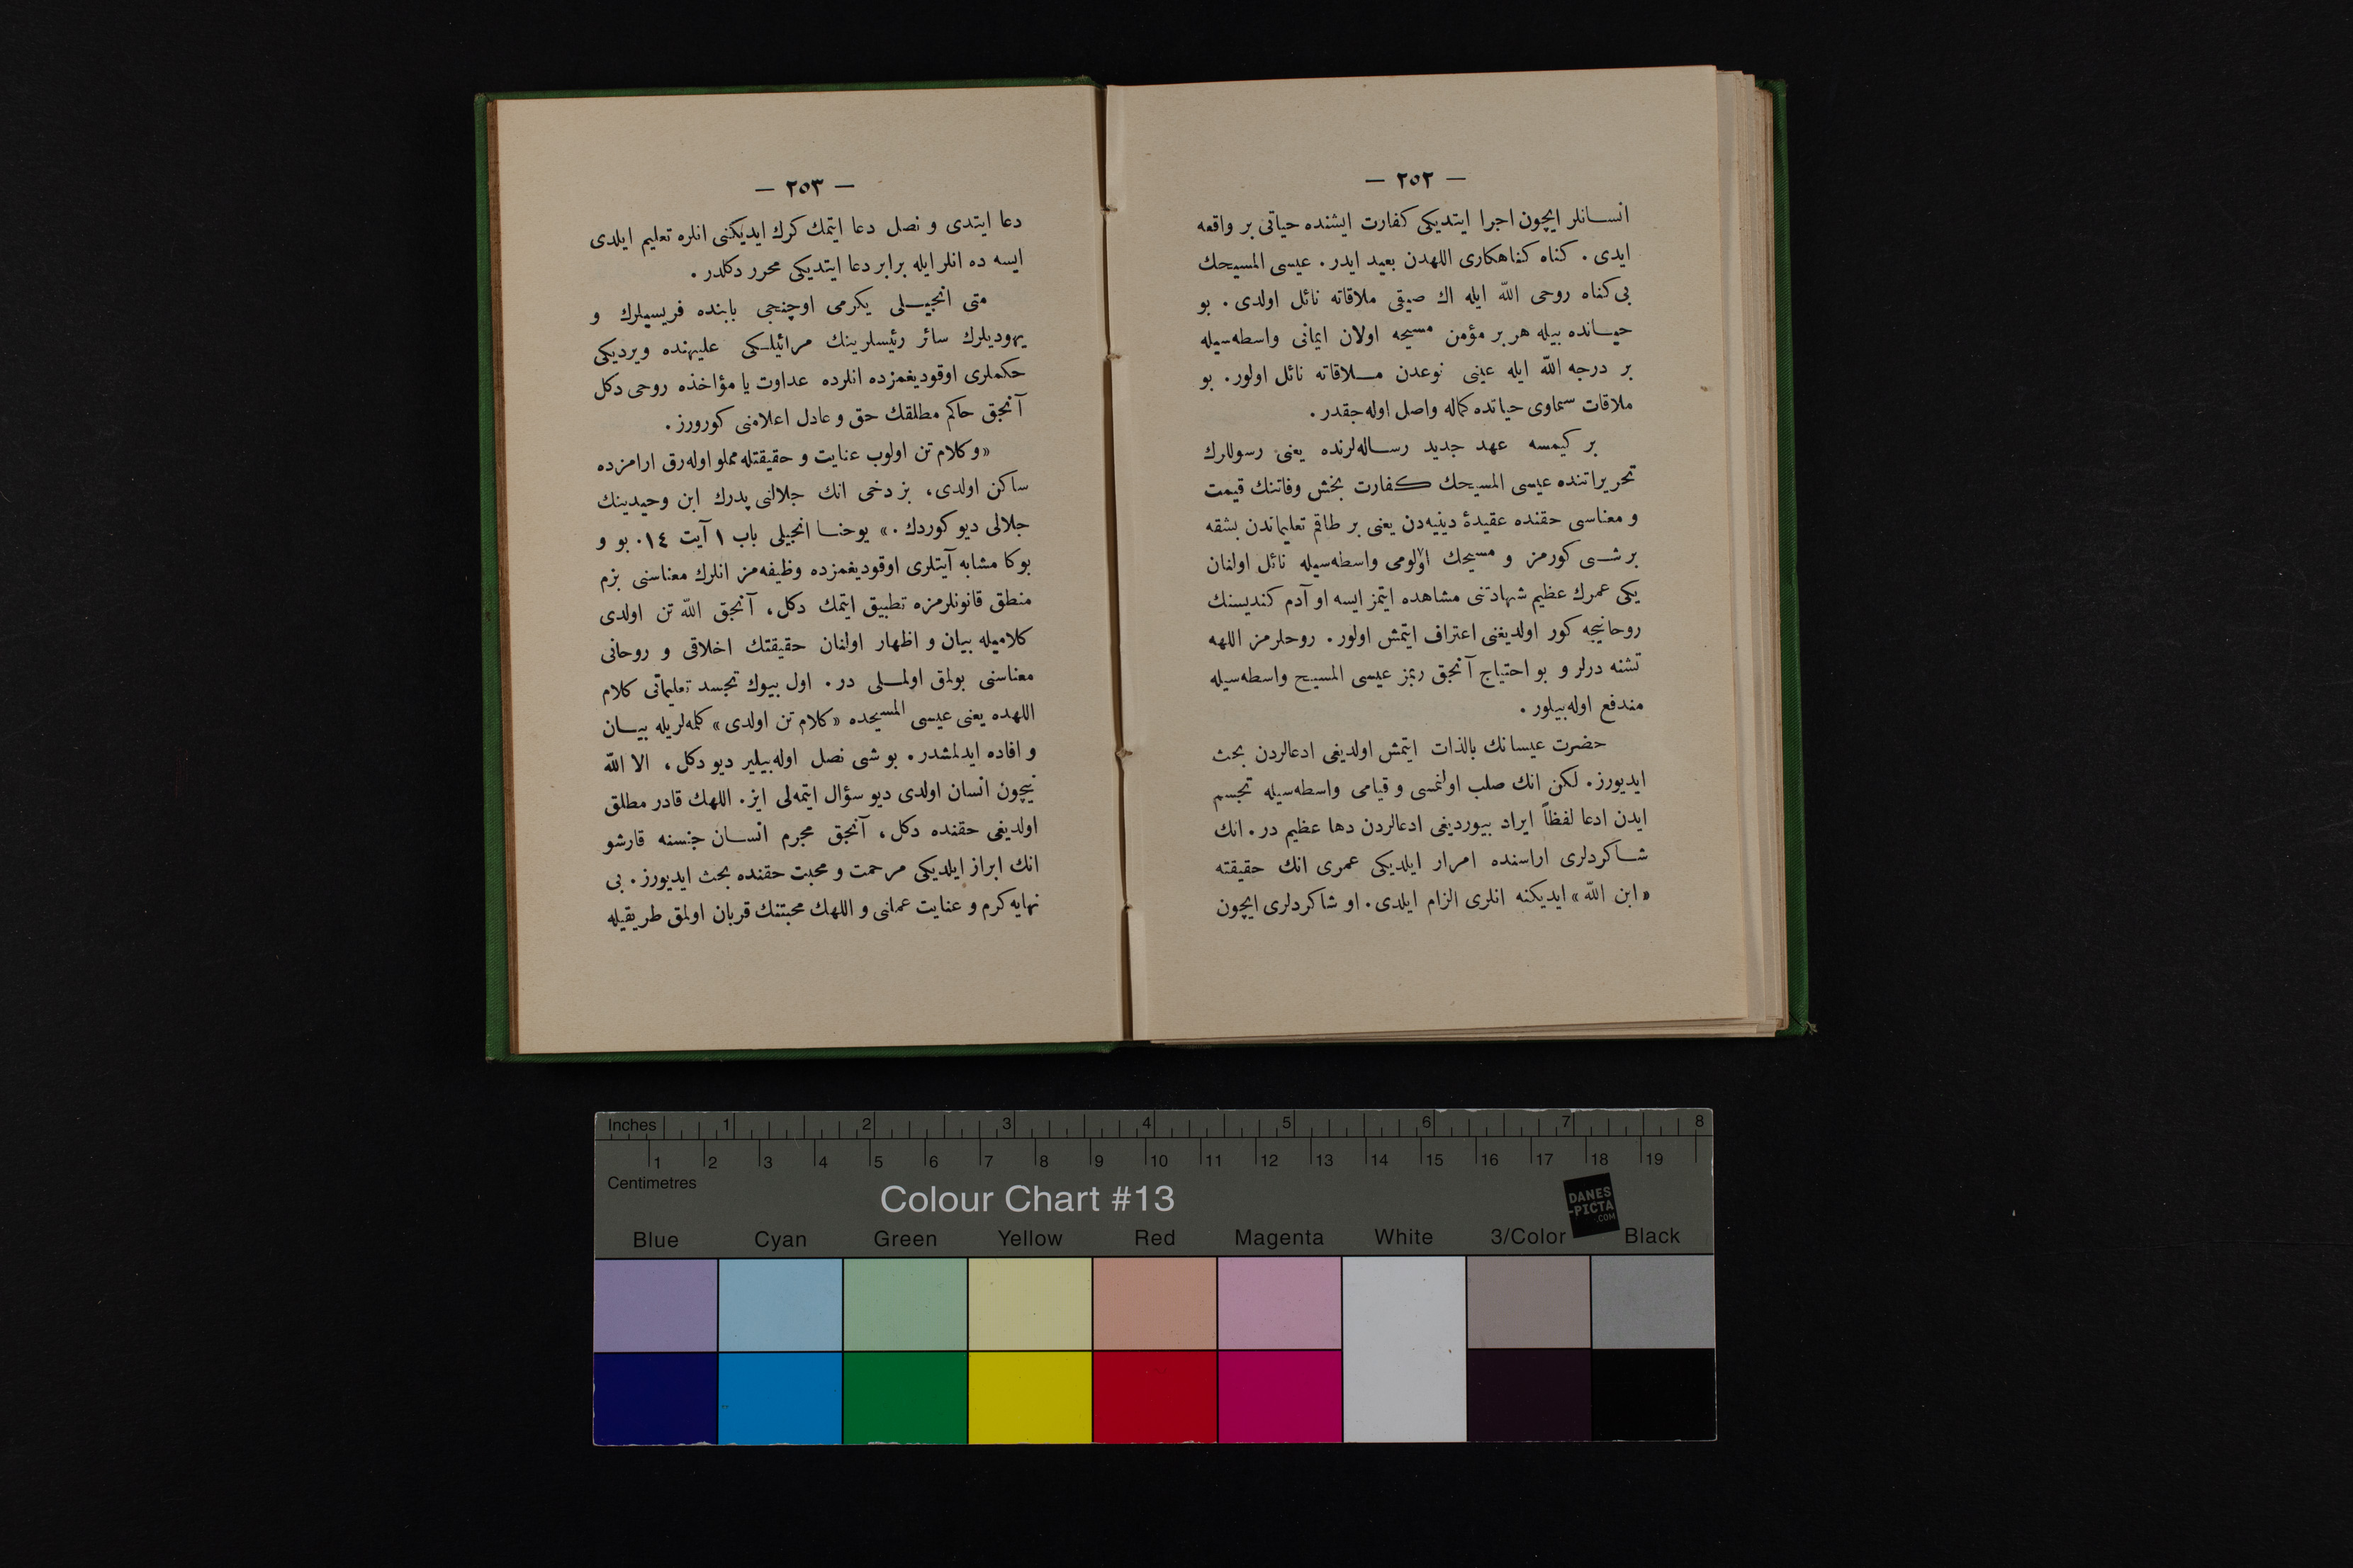 — ٢٥٢ —
انسانلر ایچون اجرا ایتدیکی کفارت ایشنده حیاتی بر واقعه
ایدی . کناه کناهکاری اللهدن بعید ایدر . عیسی المسیحك
بی کناه روحی اللّه ایله اك صیقی ملاقاته نائل اولدی . بو
حیانده بیله هر بر مؤمن مسیحه اولان ایمانی واسطه‌سیله
بر درجه اللّه ایله عینی نوعدن ملاقاته نائل اولور . بو
ملاقات سماوی حیاتده کماله واصل اوله‌جقدر .
بر کیمسه عهد جدید رساله‌لرنده یعنی رسوللرك
تحریراتنده عیسی المسیحك کفارت بخش وفاتنك قیمت
و معناسی حقنده عقیدۀ دینیه‌دن یعنی بر طاقم تعلیماتدن بشقه
بر شی کورمز و مسیحك اولومی واسطه‌سیله نائل اولنان
یکی عمرك عظیم شهادتنی مشاهده ایتمز ایسه او آدم کندیسنك
روحانیجه کور اولدیغنی اعتراف ایتمش اولور . روحلرمز اللهه
تشنه درلر و بو احتیاج آنجق ربمز عیسی المسیح واسطه‌سیله
مندفع اوله‌بیلور .
حضرت عیسانك بالذات ایتمش اولدیغی ادعالردن بحث
ایدیورز . لکن انك صلب اولنمسی و قیامی واسطه‌سیله تجسم
ایدن ادعا لفظاً ایراد بیوردیغی ادعالردن دها عظیم در . انك
شاکردلری اراسنده امرار ایلدیکی عمری انك حقیقته
«ابن اللّه» ایدیکنه انلری الزام ایلدی . او شاکردلری ایچون
— ٢٥٣ —
دعا ایتدی و نصل دعا ایتمك کرك ایدیکنی انلره تعلیم ایلدی
ایسه ده انلر ایله برابر دعا ایتدیکی محرر دکلدر .
متی انجیلی یکرمی اوچنجی بابنده فریسیلرك و
یهودیلرك سائر رئیسلرینك مرائیلکی علیهنده ویردیکی
حکملری اوقودیغمزده انلرده عداوت یا مؤاخذه روحی دکل
آنجق حاکم مطلقك حق و عادل اعلامنی کورورز .
«و کلام تن اولوب عنایت و حقیقتله مملو اوله‌رق ارامزده
ساکن اولدی ، بز دخی انك جلالنی پدرك ابن وحیدینك
جلالی دیو کوردك .» یوحنا انجیلی باب ١ آیت ١٤ . بو و
بوکا مشابه آیتلری اوقودیغمزده وظیفه‌مز انلرك معناسنی بزم
منطق قانونلرمزه تطبیق ایتمك دکل ، آنجق اللّه تن اولدی
کلامیله بیان و اظهار اولنان حقیقتك اخلاقی و روحانی
معناسنی بولمق اولملی در . اول بیوك تجسد تعلیماتی کلام
اللهده یعنی عیسی المسیحده «کلام تن اولدی» کلمه‌لریله بیان
و افاده ایدلمشدر . بو شی نصل اوله‌بیلیر دیو دکل ، الا اللّه
نیچون انسان اولدی دیو سؤال ایتمه‌لی ایز . اللهك قادر مطلق
اولدیغی حقنده دکل ، آنجق مجرم انسان جنسنه قارشو
انك ابراز ایلدیکی مرحمت و محبت حقنده بحث ایدیورز . بی
نهایه کرم و عنایت عمانی و اللهك محبتنك قربان اولمق طریقیله
Inches 1 2 3 4 5 6 7 8
1 2 3 4 5 6 7 8 9 10 11 12 13 14 15 16 17 18 19
Centimetres
Colour Chart #13
DANES
-PICTA
.COM
Blue Cyan Green Yellow Red Magenta White 3/Color Black